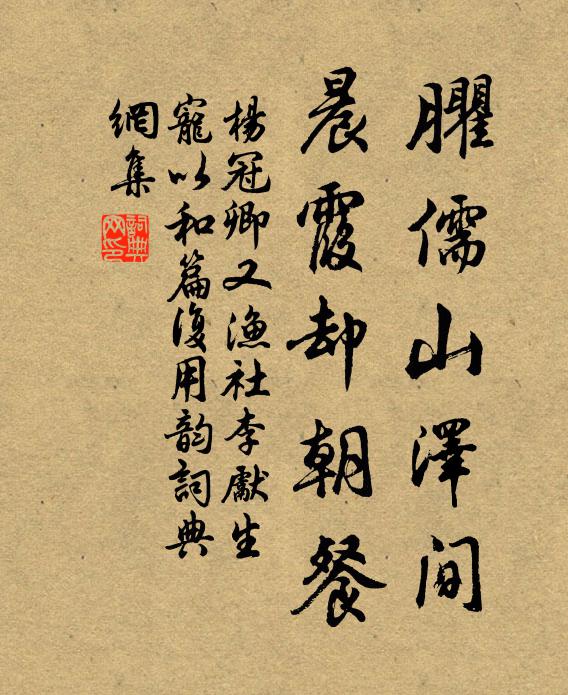 臞儒山澤間
晨霞却朝餐
楊冠卿又漁社李獻生
寵以和篇復用韵詞典
網集
詞典網印